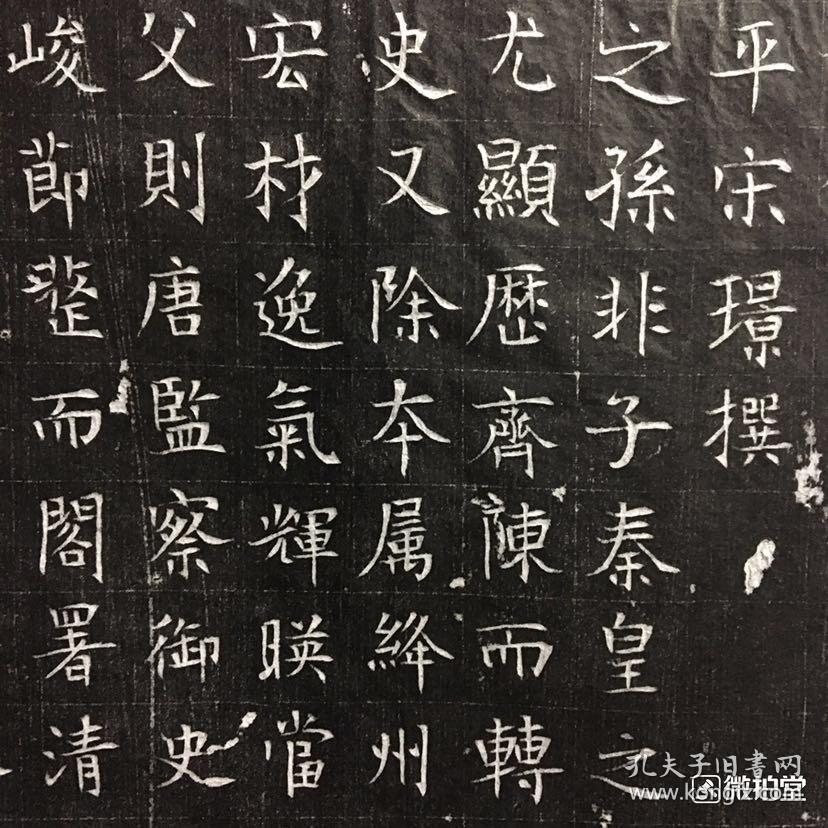 平宋璟撰
之孫非子秦皇之
尤顯歷齊陳而轉
史又除本属絳州
宏材逸氣輝暎當
父則唐監察御史
峻節整而閣署清
孔夫子旧書网
www.kongfz.com
微拍堂